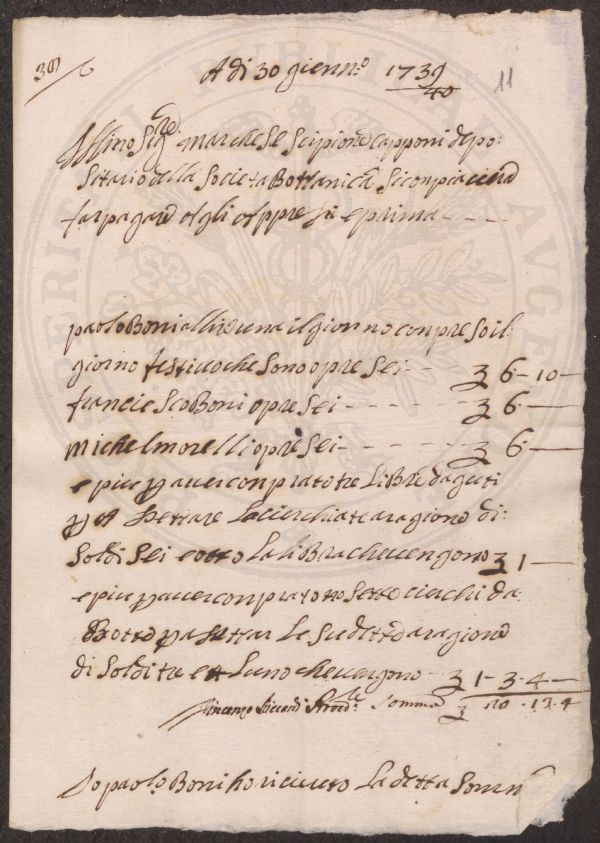 30/6
A di 30 gienno. 1739/40
11
Illmo Sigre. Marchese Scipione Capponi depo:
Sitario della Societa Bottanica Si conpiacierà
far pagare Agli Appresi e prima - - - -
paolo Boni alli una il giorno conpreso il
giorno festivo che Sono opre Sei - - 3 6 - 10 -
francieSco Boni opre Sei - - - - - - 3 6 -
Michel morelli opre Sei - - - - - - 3 6 -
e piu p aver conprato tre Libre d aguti
p A Settare La cierchiata a ragione di:
Soldi Sei e otto La liBra che vengono 3 1 -
e piu p aver conprato no Sette cierchi da
Botte p a Settar Le Sudette a ragione
di Soldi tre e 4 L uno che vengono - 3 1 - 3 - 4 -
Vincenzo Somma 3 20 . 13 . 4
Io paolo Boni ho ricievuto La detta Somma